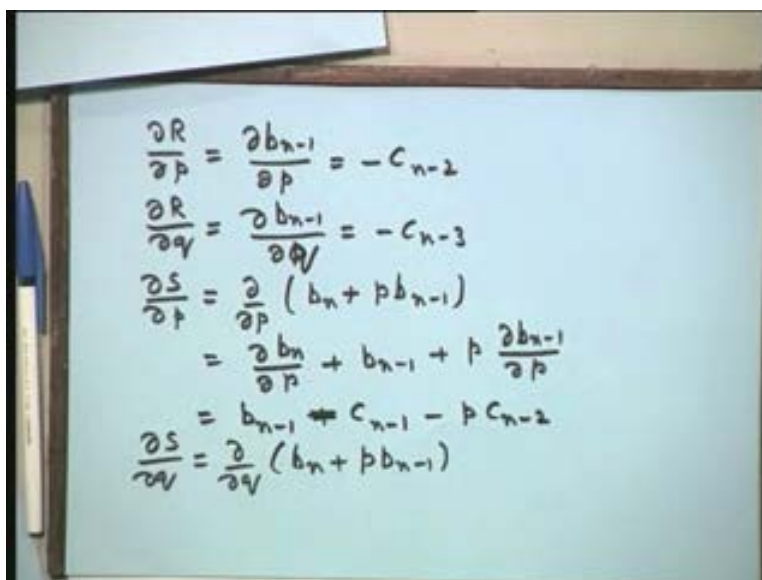 ∂R/∂p = ∂b_{n-1}/∂p = -C_{n-2}
∂R/∂q = ∂b_{n-1}/∂q = -C_{n-3}
∂S/∂p = ∂/∂p (b_n + p b_{n-1})
= ∂b_n/∂p + b_{n-1} + p ∂b_{n-1}/∂p
= b_{n-1} - C_{n-1} - p C_{n-2}
∂S/∂q = ∂/∂q (b_n + p b_{n-1})